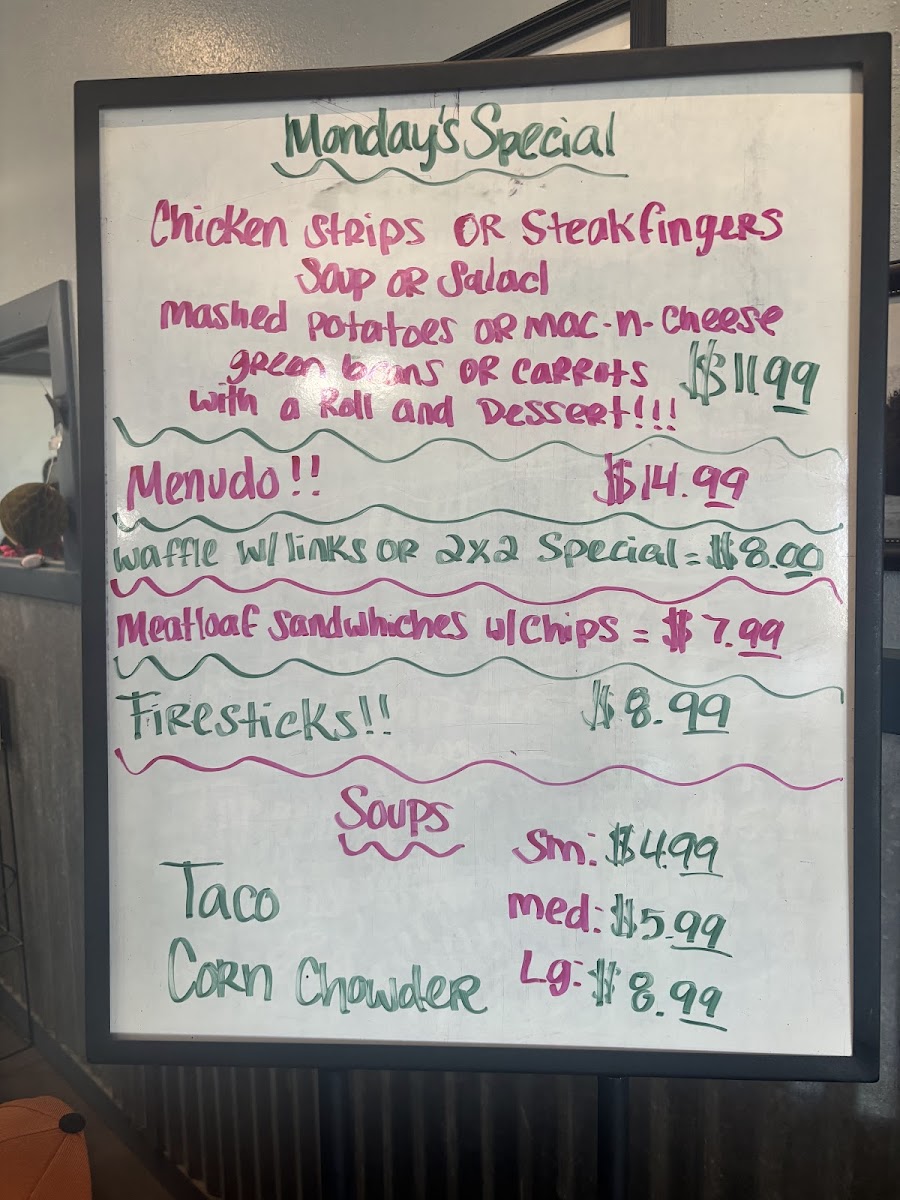 Monday's Special
Chicken Strips OR Steakfingers
Soup OR Salad
Mashed Potatoes OR Mac-n-Cheese
green beans OR Carrots $11.99
with a Roll and Dessert!!!
Menudo!! $14.99
Waffle w/links OR 2x2 Special = $8.00
Meatloaf Sandwhiches w/Chips = $7.99
Firesticks!! $8.99
Soups
Sm: $4.99
Taco
med: $5.99
Corn Chowder Lg: $8.99